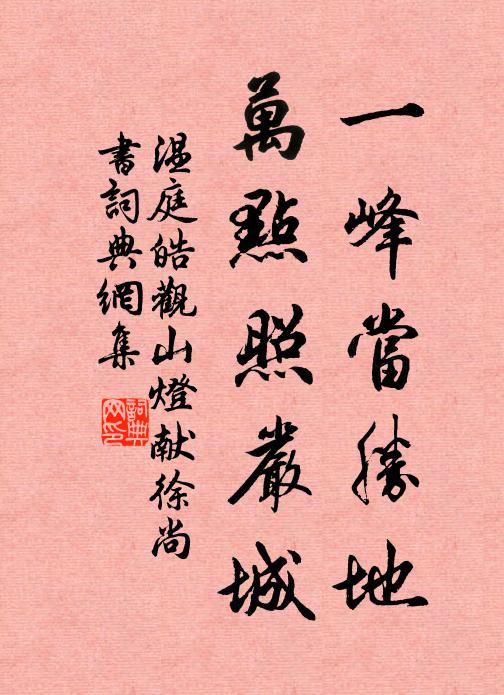 一峰當勝地
萬點照嚴城
温庭皓觀山燈献徐尚
書詞典網集
詞典
网印